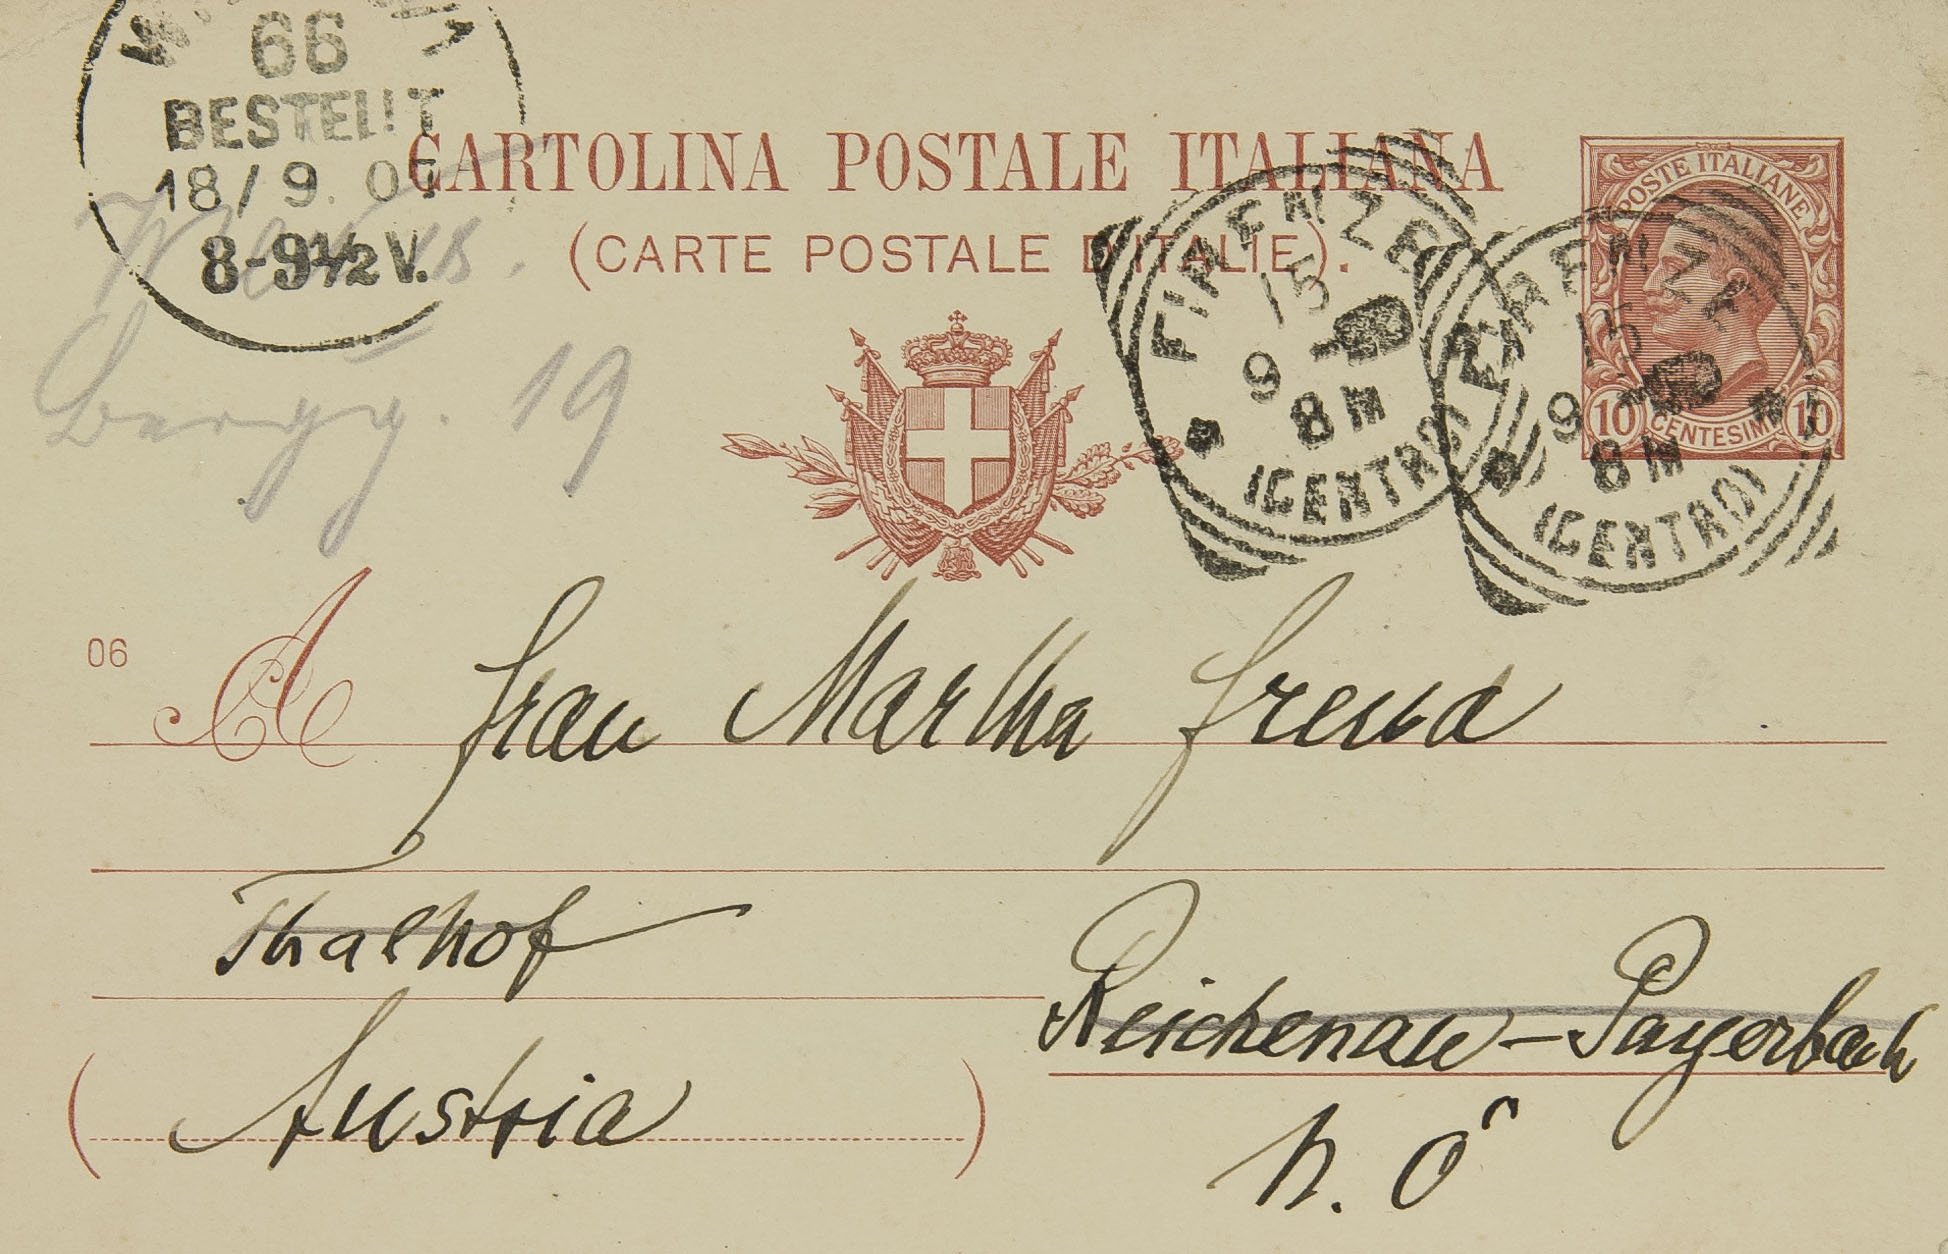 66
BESTELLT
18/9. 07
8-9½V.
CARTOLINA POSTALE ITALIANA
(CARTE POSTALE D'ITALIE).
POSTE ITALIANE
10 CENTESIMI 10
FIRENZE
15
9
8 M
(CENTRO)
FIRENZE
15
9
8 M
(CENTRO)
Wien IX.
Bergg. 19
06
A Frau Martha Freud
Thalhof
Reichenau-Payerbach
Austria
N. Ö